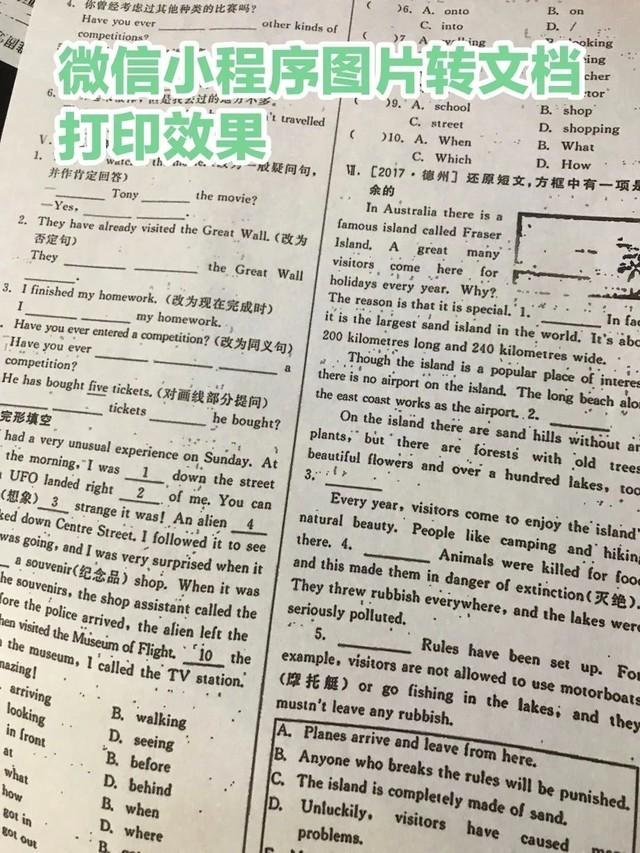 微信小程序图片转文档
打印效果
4. 你曾经考虑过其他种类的比赛吗?
Have you ever ________ other kinds of
competitions?
6.
't travelled
V.
1.
并作肯定回答)
________ Tony ________ the movie?
—Yes, ________ ________.
2. They have already visited the Great Wall. (改为
否定句)
They ________ ________ the Great Wall
________.
3. I finished my homework. (改为现在完成时)
I ________ ________ my homework.
. Have you ever entered a competition? (改为同义句)
Have you ever ________ ________ ________ a
competition?
He has bought five tickets. (对画线部分提问)
________ ________ tickets ________ he bought?
完形填空
had a very unusual experience on Sunday. At
the morning, I was 1 down the street
UFO landed right 2 of me. You can
(想象) 3 strange it was! An alien 4
ked down Centre Street. I followed it to see
was going, and I was very surprised when it
a souvenir(纪念品) shop. When it was
he souvenirs, the shop assistant called the
fore the police arrived, the alien left the
hen visited the Museum of Flight. 10 the
the museum, I called the TV station.
mazing!
arriving B. walking
looking D. seeing
in front B. before
at D. behind
what B. when
how D. where
got in B.
got out
( )6. A. onto B. on
C. into D. /
( )7 A. B. looking
( )9. A. school B. shop
C. street D. shopping
( )10. A. When B. What
C. Which D. How
Ⅶ. [2017·德州] 还原短文,方框中有一项是
余的
In Australia there is a
famous island called Fraser
Island. A great many
visitors come here for
holidays every year. Why?
The reason is that it is special. 1. ________ In fac
it is the largest sand island in the world. It's abo
200 kilometres long and 240 kilometres wide.
Though the island is a popular place of interes
there is no airport on the island. The long beach alon
the east coast works as the airport. 2. ________
On the island there are sand hills without an
plants, but there are forests with old trees
beautiful flowers and over a hundred lakes, too
3. ________
Every year, visitors come to enjoy the island'
natural beauty. People like camping and hiking
there. 4. ________ Animals were killed for food
and this made them in danger of extinction(灭绝).
They threw rubbish everywhere, and the lakes were
seriously polluted.
5. ________ Rules have been set up. For
example, visitors are not allowed to use motorboats
(摩托艇) or go fishing in the lakes, and they
mustn't leave any rubbish.
A. Planes arrive and leave from here.
B. Anyone who breaks the rules will be punished.
C. The island is completely made of sand.
D. Unluckily, visitors have caused man
problems.